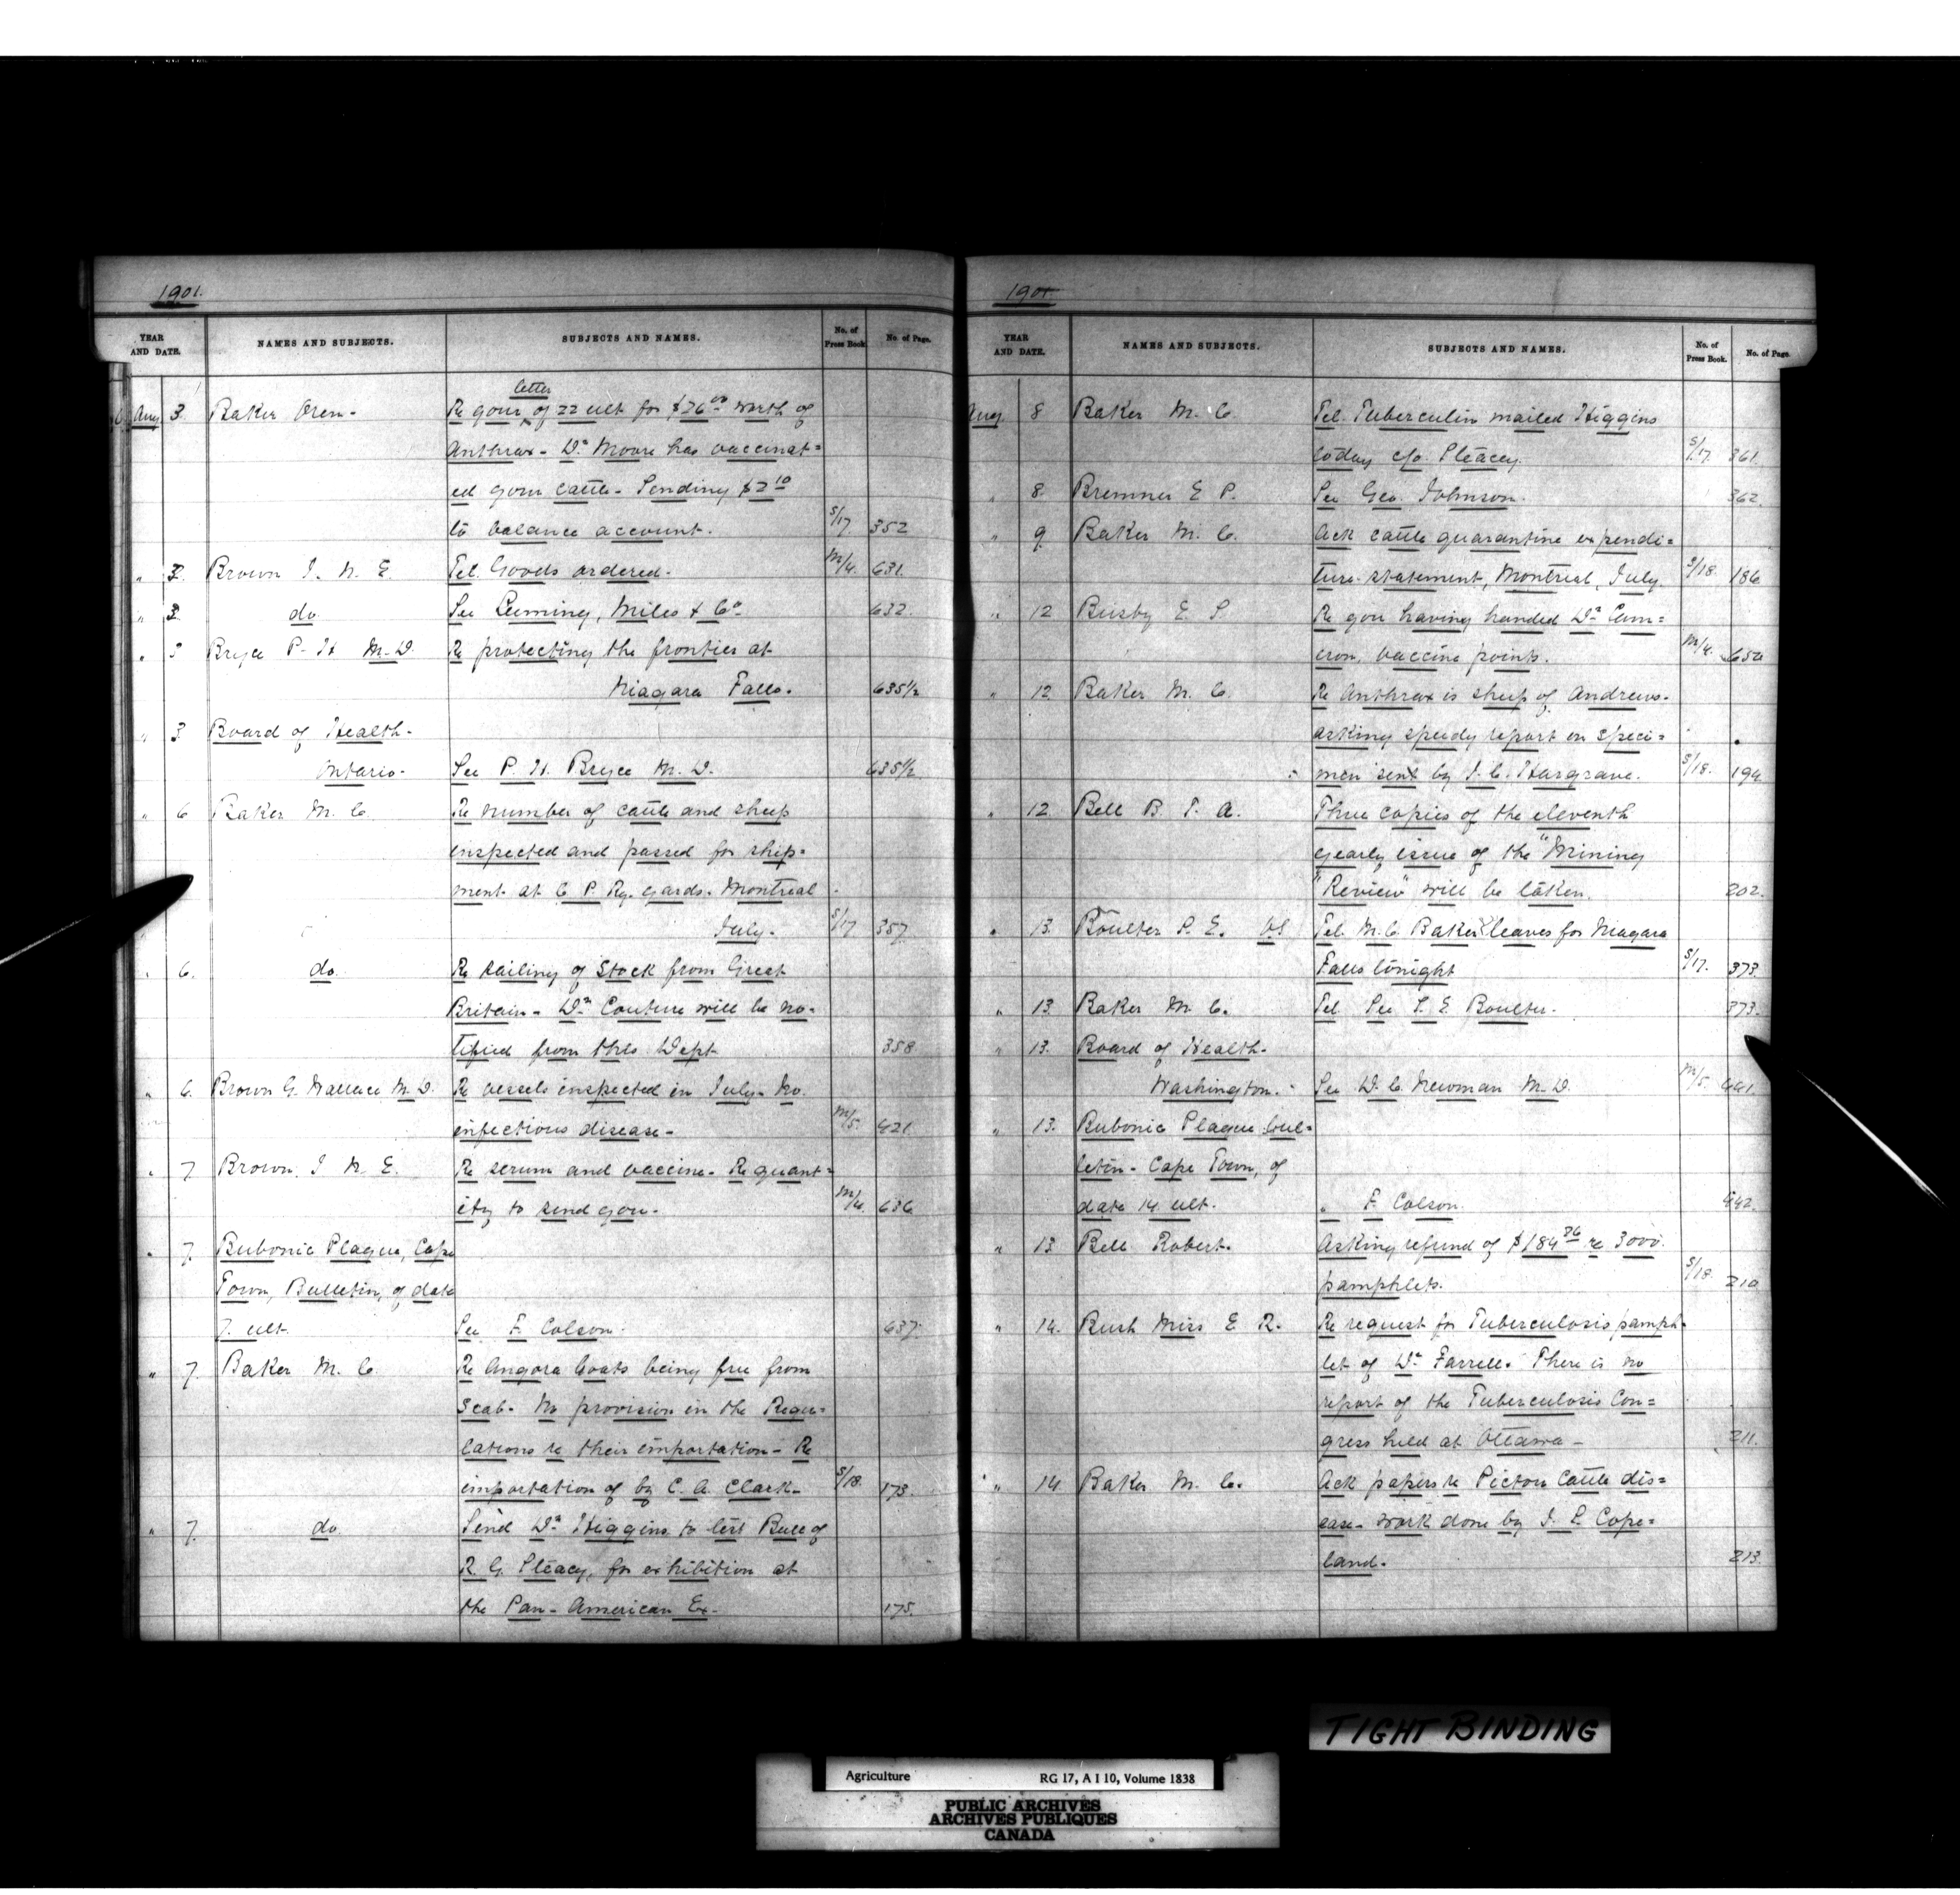 1901.
YEAR AND DATE. NAMES AND SUBJECTS. SUBJECTS AND NAMES. No. of Press Book. No. of Page.
letter
Aug 3. Baker Oren - Re your of 22 ult for $26.00 worth of
Anthrax - Dr Moore has vaccinat=
ed your cattle - Sending $2 10
to balance account. S/17 352
" 3. Brown J. N. E. Tel. Goods ordered. M/4. 631.
" 3. do See Leeming, Miles & Co 632.
" 3 Bryce P. H M.D. Re protecting the frontier at
Niagara Falls. 635½
" 3 Board of Health -
Ontario - See P. H. Bryce M.D. 635½
" 6 Baker M. C. Re number of cattle and sheep
inspected and passed for ship=
ment at C P. Ry. yards. Montreal
July. S/17 357
" 6. do. Re sailing of Stock from Great
Britain - Dr Couture will be no=
tified from this Dept 358
" 6. Brown G. Wallace M.D. Re vessels inspected in July. No
infectious disease - M/5. 421
" 7 Brown. J N. E. Re serum and vaccine. Re quant=
ity to send you. M/4. 636
" 7. Bubonic Plague, Cape
Town, Bulletin, of date
7. ult. See F. Colson. 637.
" 7. Baker M. C Re Angora Goats being free from
Scab. No provision in the Regu=
lations re their importation - Re
importation of by C. A. Clark - S/18. 173.
" 7. do Send Dr Higgins to test Bull of
R. G. Steacy, for exhibition at
the Pan-American Ex - 175.
1901
YEAR AND DATE. NAMES AND SUBJECTS. SUBJECTS AND NAMES. No. of Press Book. No. of Page.
Aug 8 Baker M. C. Tel. Tuberculin mailed Higgins
today c/o Steacy. S/17. 361.
" 8. Bremner E P. See Geo. Johnson. 362.
" 9 Baker M. C. Ack cattle quarantine expendi=
ture statement, Montreal, July. S/18. 186
" 12 Busby E. S. Re you having handed Dr Cam=
eron, vaccine points. M/4. 654
" 12 Baker M. C. Re Anthrax is sheep of Andrews.
asking speedy report on speci=
men sent by J. C. Hargrave. S/18. 194
" 12. Bell B. T. A. Three copies of the eleventh
yearly issue of the "Mining
"Review" will be taken. 202.
" 13. Boulter S. E. VS Tel. M. C. Baker leaves for Niagara
Falls tonight S/17. 373.
" 13. Baker M C. Tel See S. E Boulter. 373.
" 13. Board of Health.
Washington. See D. C. Newman M.D. M/5. 441.
" 13. Bubonic Plague Bul=
letin - Cape Town, of
date 14 ult. " F. Colson. 442.
" 13 Bell Robert. Asking refund of $184 36 re 3000
pamphlets. S/18. 210
" 14. Bush Miss E. R. Re request for Tuberculosis pamph=
let of Dr Farrell. There is no
report of the Tuberculosis Con=
gress held at Ottawa - 211.
" 14 Baker M. C. Ack papers re Pictou Cattle dis=
ease - work done by J. L Cope=
land. 213.
TIGHT BINDING
Agriculture RG 17, A I 10, Volume 1838
PUBLIC ARCHIVES
ARCHIVES PUBLIQUES
CANADA